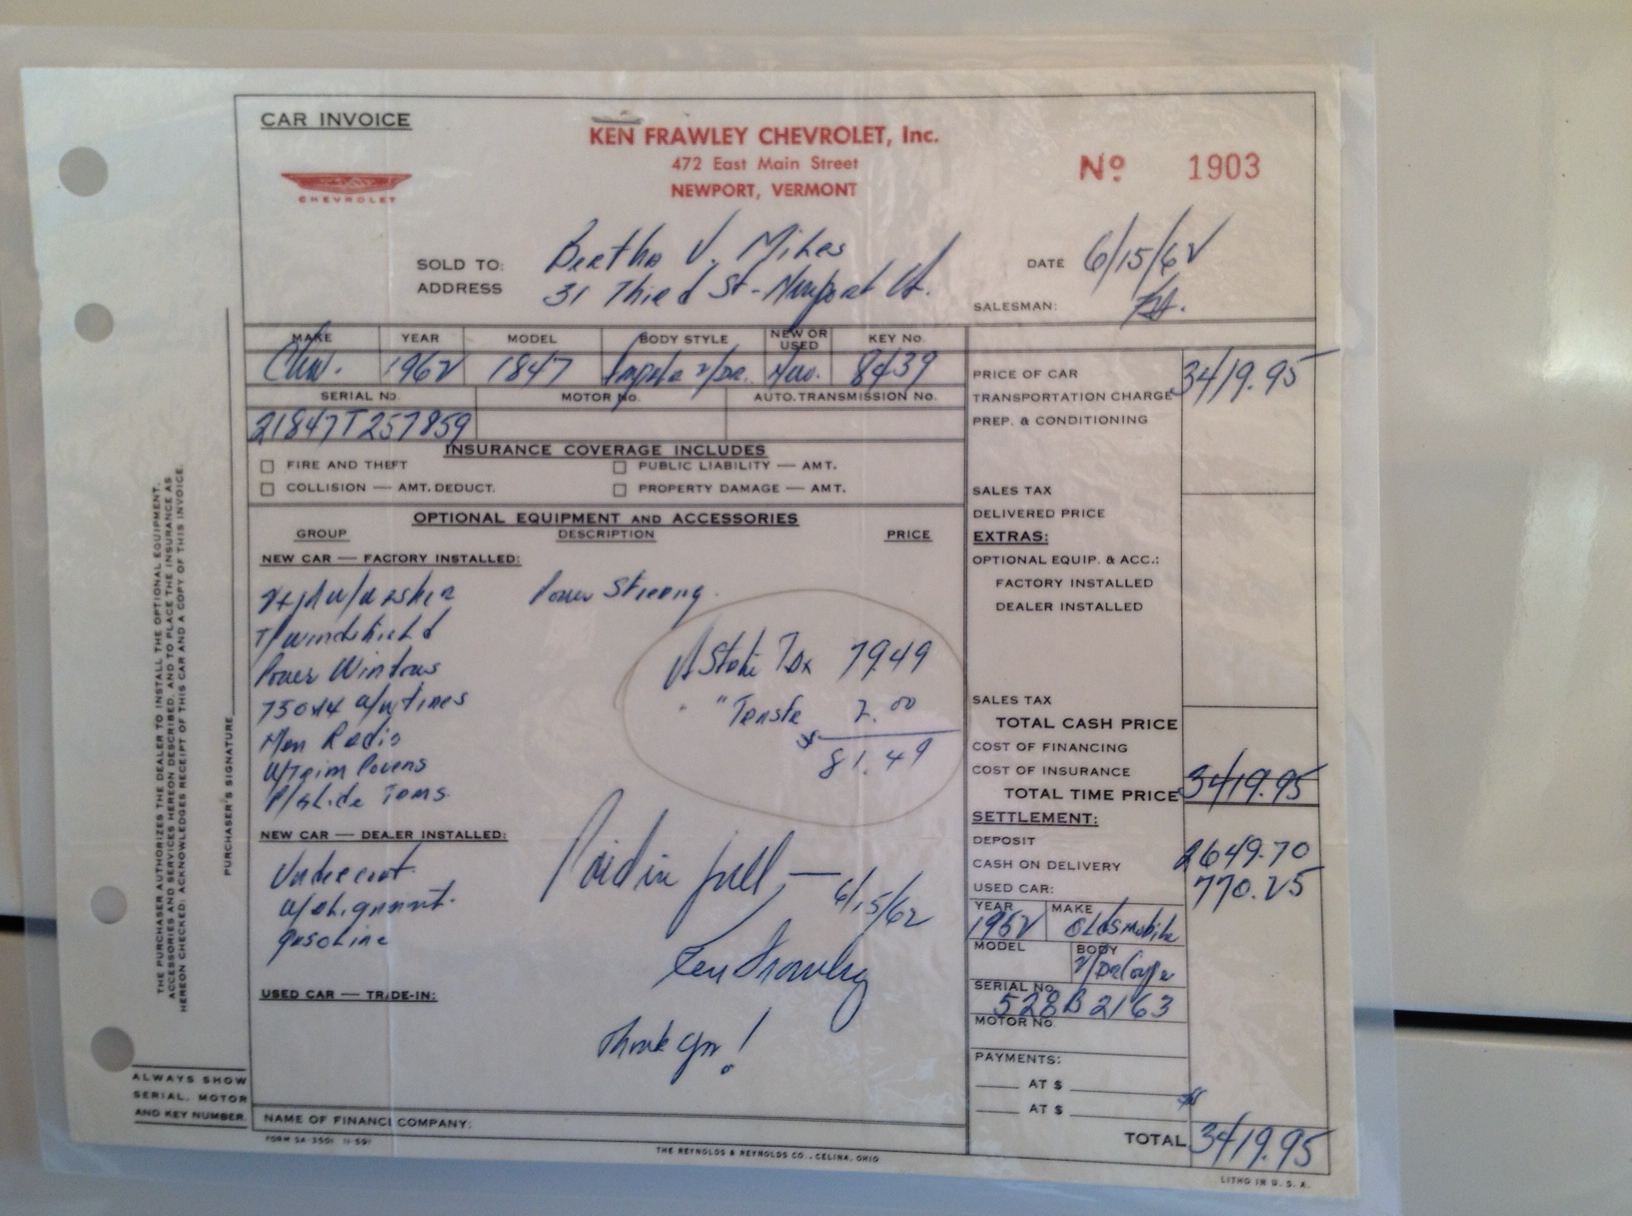 CAR INVOICE
CHEVROLET
KEN FRAWLEY CHEVROLET, Inc.
472 East Main Street
NEWPORT, VERMONT
No. 1903
SOLD TO: Bertha V. Miles
ADDRESS 31 Third St - Newport Vt.
DATE 6/15/62
SALESMAN:
MAKE YEAR MODEL BODY STYLE NEW OR USED KEY No.
Chev. 1962 1847 Impala 2/Dr. New. 8439
SERIAL No. MOTOR No. AUTO. TRANSMISSION No.
21847T257859
INSURANCE COVERAGE INCLUDES
FIRE AND THEFT PUBLIC LIABILITY — AMT.
COLLISION — AMT. DEDUCT. PROPERTY DAMAGE — AMT.
OPTIONAL EQUIPMENT AND ACCESSORIES
GROUP DESCRIPTION PRICE
NEW CAR — FACTORY INSTALLED:
w/washer Power Steering
T/windshield
Power Windows
750x14 w/w tires
Man Radio
W/Trim
NEW CAR — DEALER INSTALLED:
Undercoat
gasoline
USED CAR — TRADE-IN:
Vt State Tax 79.49
" " 2.00
$ 81.49
Paid in full, — 6/15/62
Ken Frawley
Thank You!
NAME OF FINANCE COMPANY:
PRICE OF CAR 3419.95
TRANSPORTATION CHARGE
PREP. & CONDITIONING
SALES TAX
DELIVERED PRICE
EXTRAS:
OPTIONAL EQUIP. & ACC.:
FACTORY INSTALLED
DEALER INSTALLED
SALES TAX
TOTAL CASH PRICE
COST OF FINANCING
COST OF INSURANCE
TOTAL TIME PRICE 3419.95
SETTLEMENT:
DEPOSIT
CASH ON DELIVERY 2649.70
USED CAR: 770.25
YEAR MAKE
1952 Oldsmobile
MODEL BODY
2/Dr
SERIAL No.
528B2163
MOTOR No.
PAYMENTS:
AT $
AT $
TOTAL $ 3419.95
FORM SA-3501 11-59
THE REYNOLDS & REYNOLDS CO., CELINA, OHIO
LITHO IN U. S. A.
THE PURCHASER AUTHORIZES THE DEALER TO INSTALL THE OPTIONAL EQUIPMENT,
ACCESSORIES AND SERVICES HEREON DESCRIBED, AND TO PLACE THE INSURANCE AS
HEREON CHECKED; ACKNOWLEDGES RECEIPT OF THIS CAR AND A COPY OF THIS INVOICE.
PURCHASER'S SIGNATURE
ALWAYS SHOW
SERIAL, MOTOR
AND KEY NUMBER.